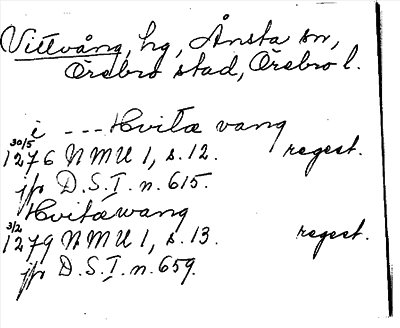 Vittvång, hg, Ånsta sn,
Örebro stad, Örebro l.
i --- Hvitæ vang
30/5 1276 NMU 1, s. 12. regest.
jfr D.S.I. n. 615.
Hvitæwang
3/2 1279 NMU 1, s. 13. regest.
jfr D.S.I. n. 659.